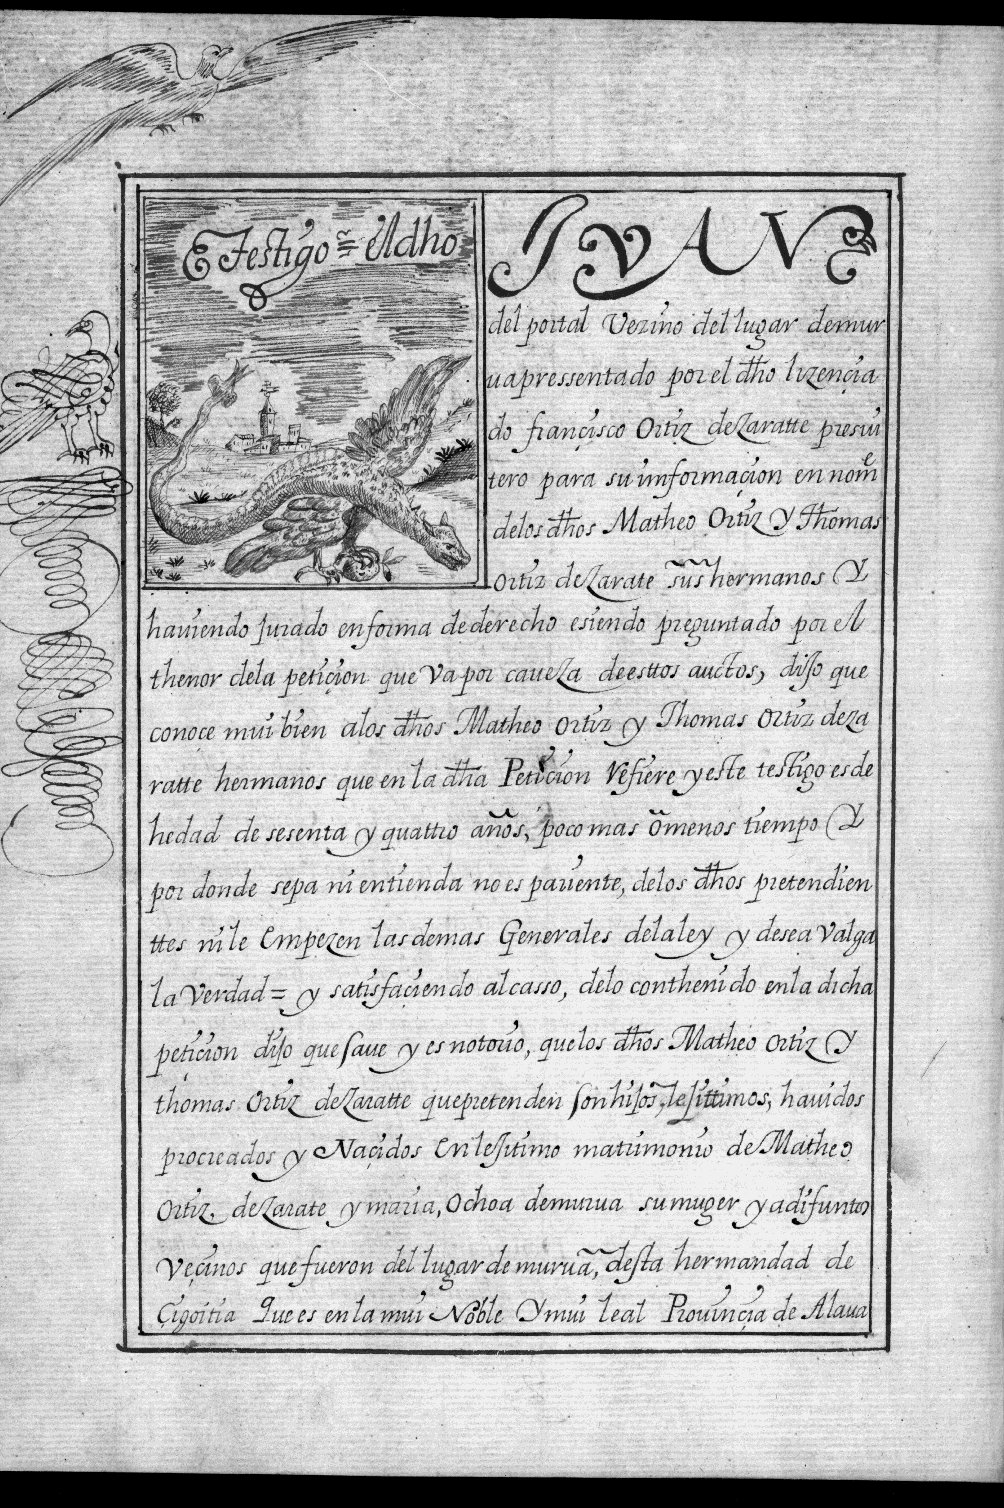 Testigo = el dho
JVAN
del portal Vezino del lugar demur
ua pressentado por el dho lizençia
do françisco Ortiz deZaratte presui
tero para su imformaçion en nome
delos dhos Matheo Ortiz y Thomas
Ortiz deZarate sus hermanos Y
haviendo Jurado en forma de derecho esiendo preguntado por el
thenor dela petiçion que Va por caueza de esttos auctos, dijo que
conoçe mui bien alos dhos Matheo Ortiz y Thomas Ortiz deza
ratte hermanos que en la dha Petiçion Refiere y este testigo es de
hedad de sesenta y quattro años, poco mas omenos tiempo Y
por donde sepa ni entienda no es pariente, delos dhos pretendien
ttes ni le Empezen las demas Generales dela ley y desea Valga
la Verdad = y satisfaçiendo al casso, delo conthenido en la dicha
petiçion dijo que saue y es notorio, que los dhos Matheo Ortiz Y
thomas Ortiz deZaratte que pretenden son hijos, lejittimos, hauidos
procreados y Naçidos En lejitimo matrimonio de Matheo
Ortiz. deZarate y maria, Ochoa demurua su muger ya difuntos
Veçinos que fueron del lugar de murua, desta hermandad de
Çigoitia Que es en la mui Noble Y mui leal Prouinçia de Alaua